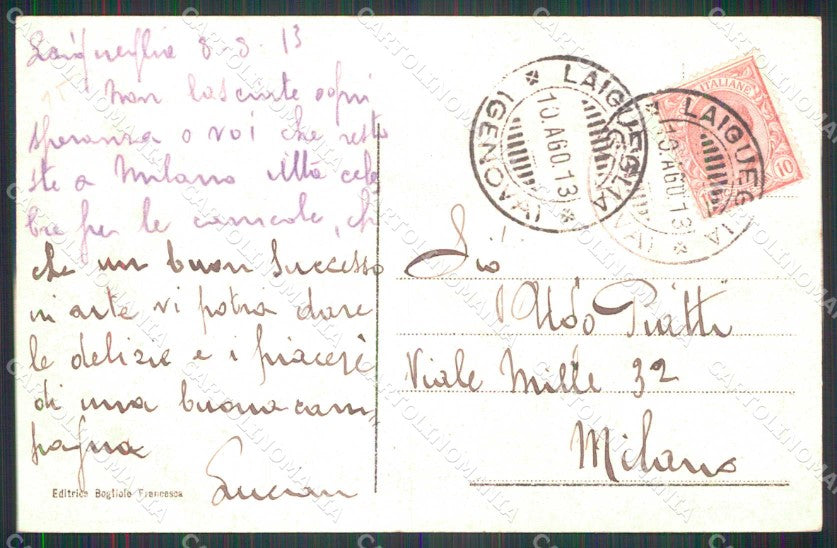 Laigueglia 8-8-13
Non lasciate ogni
speranza o voi che resta
ste a Milano città cele
bre per le canicole, ch
che un buon successo
in arte vi potrà dare
le delizie e i piaceri
di una buona cam
pagna
Lucian
Editrice Bogliolo Francesca
LAIGUEGLIA (GENOVA)
10 AGO.13
LAIGUEGLIA (GENOVA)
10 AGO.13
ITALIANE
10
Sig
Aldo Piatti
Viale Mille 32
Milano
CARTOLINOMANIA